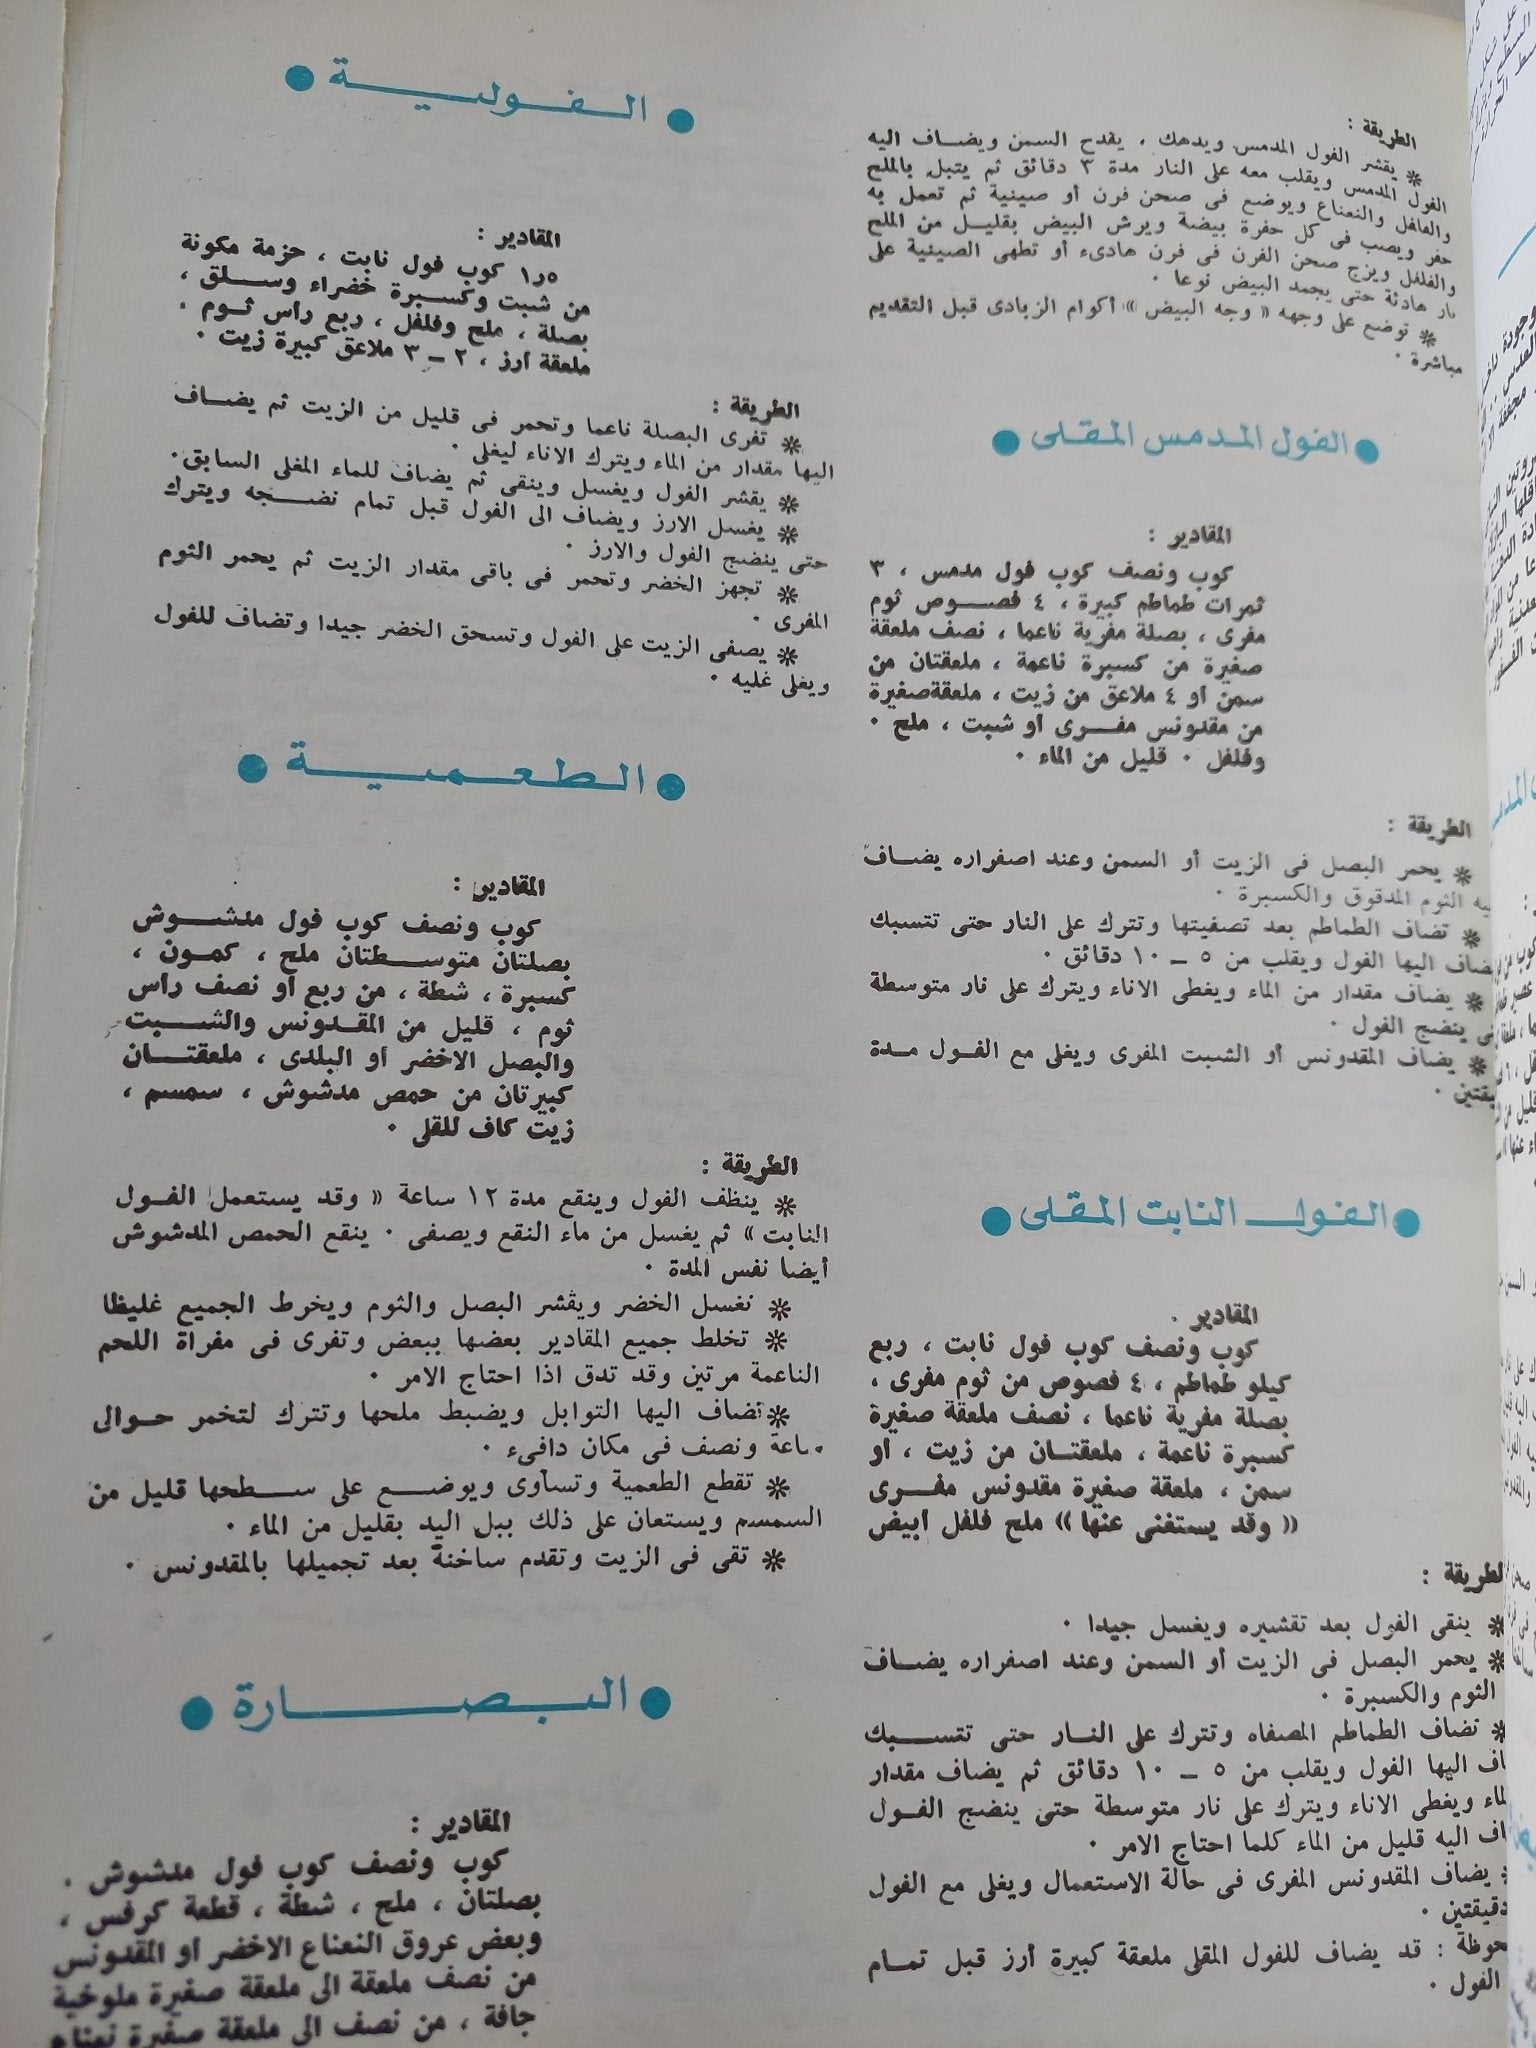 الطريقة :
* يقشر الفول المدمس ويدهك ، يقدح السمن ويضاف اليه
الفول المدمس ويقلب معه على النار مدة ٣ دقائق ثم يتبل بالملح
والفلفل والنعناع ويوضع فى صحن فرن أو صينية ثم تعمل به
حفر ويصب فى كل حفرة بيضة ويرش البيض بقليل من الملح
والفلفل ويزج صحن الفرن فى فرن هادىء أو تطهى الصينية على
نار هادئة حتى يجمد البيض نوعا .
* توضع على وجهه « وجه البيض » أكوام الزبادى قبل التقديم
مباشرة .
● الفول المدمس المقلى ●
المقادير :
كوب ونصف كوب فول مدمس ، ٣
ثمرات طماطم كبيرة ، ٤ فصوص ثوم
مفرى ، بصلة مفرية ناعما ، نصف ملعقة
صغيرة من كسبرة ناعمة ، ملعقتان من
سمن أو ٤ ملاعق من زيت ، ملعقةصغيرة
من مقدونس مفرى أو شبت ، ملح .
وفلفل . قليل من الماء .
الطريقة :
* يحمر البصل فى الزيت أو السمن وعند اصفراره يضاف
ليه الثوم المدقوق والكسبرة .
* تضاف الطماطم بعد تصفيتها وتترك على النار حتى تتسبك
يضاف اليها الفول ويقلب من ٥ – ١٠ دقائق .
* يضاف مقدار من الماء ويغطى الاناء ويترك على نار متوسطة
تى ينضج الفول .
* يضاف المقدونس أو الشبت المفرى ويغلى مع الفول مدة
يقتين .
● الفول النابت المقلى ●
المقادير .
كوب ونصف كوب فول نابت ، ربع
كيلو طماطم ، ٤ فصوص من ثوم مفرى ،
بصلة مفرية ناعما ، نصف ملعقة صغيرة
كسبرة ناعمة ، ملعقتان من زيت ، أو
سمن ، ملعقة صغيرة مقدونس مفرى
« وقد يستغنى عنها » ملح فلفل أبيض
لطريقة :
* ينقى الفول بعد تقشيره ويغسل جيدا .
* يحمر البصل فى الزيت أو السمن وعند اصفراره يضاف
الثوم والكسبرة .
* تضاف الطماطم المصفاه وتترك على النار حتى تتسبك
اف اليها الفول ويقلب من ٥ – ١٠ دقائق ثم يضاف مقدار
لماء ويغطى الاناء ويترك على نار متوسطة حتى ينضج الفول
اف اليه قليل من الماء كلما احتاج الامر .
* يضاف المقدونس المفرى فى حالة الاستعمال ويغلى مع الفول
دقيقتين .
حوظة : قد يضاف للفول المقلى ملعقة كبيرة أرز قبل تمام
الفول .
● الفولية ●
المقادير :
١٫٥ كوب فول نابت ، حزمة مكونة
من شبت وكسبرة خضراء وسلق ،
بصلة ، ملح وفلفل ، ربع رأس ثوم .
ملعقة أرز ، ٢ – ٣ ملاعق كبيرة زيت .
الطريقة :
* تفرى البصلة ناعما وتحمر فى قليل من الزيت ثم يضاف
اليها مقدار من الماء ويترك الاناء ليغلى .
* يقشر الفول ويغسل وينقى ثم يضاف للماء المغلى السابق.
* يغسل الارز ويضاف الى الفول قبل تمام نضجه ويترك
حتى ينضج الفول والارز .
* تجهز الخضر وتحمر فى باقى مقدار الزيت ثم يحمر الثوم
المفرى .
* يصفى الزيت على الفول وتسحق الخضر جيدا وتضاف للفول
ويغلى غليه .
● الطعمية ●
المقادير :
كوب ونصف كوب فول مدشوش
بصلتان متوسطتان ملح ، كمون ،
كسبرة ، شطة ، من ربع أو نصف رأس
ثوم ، قليل من المقدونس والشبت
والبصل الاخضر أو البلدى ، ملعقتان
كبيرتان من حمص مدشوش ، سمسم ،
زيت كاف للقلى .
الطريقة :
* ينظف الفول وينقع مدة ١٢ ساعة « وقد يستعمل الفول
النابت » ثم يغسل من ماء النقع ويصفى . ينقع الحمص المدشوش
أيضا نفس المدة .
* تغسل الخضر ويقشر البصل والثوم ويخرط الجميع غليظا
* تخلط جميع المقادير بعضها ببعض وتفرى فى مفراة اللحم
الناعمة مرتين وقد تدق اذا احتاج الامر .
* تضاف اليها التوابل ويضبط ملحها وتترك لتخمر حوالى
ساعة ونصف فى مكان دافىء .
* تقطع الطعمية وتسأوى ويوضع على سطحها قليل من
السمسم ويستعان على ذلك ببل اليد بقليل من الماء .
* تقى فى الزيت وتقدم ساخنة بعد تجميلها بالمقدونس .
● البصارة ●
المقادير :
كوب ونصف كوب فول مدشوش .
بصلتان ، ملح ، شطة ، قطعة كرفس ،
وبعض عروق النعناع الاخضر أو المقدونس
من نصف ملعقة الى ملعقة صغيرة ملوخية
جافة ، من نصف الى ملعقة صغيرة نعناع